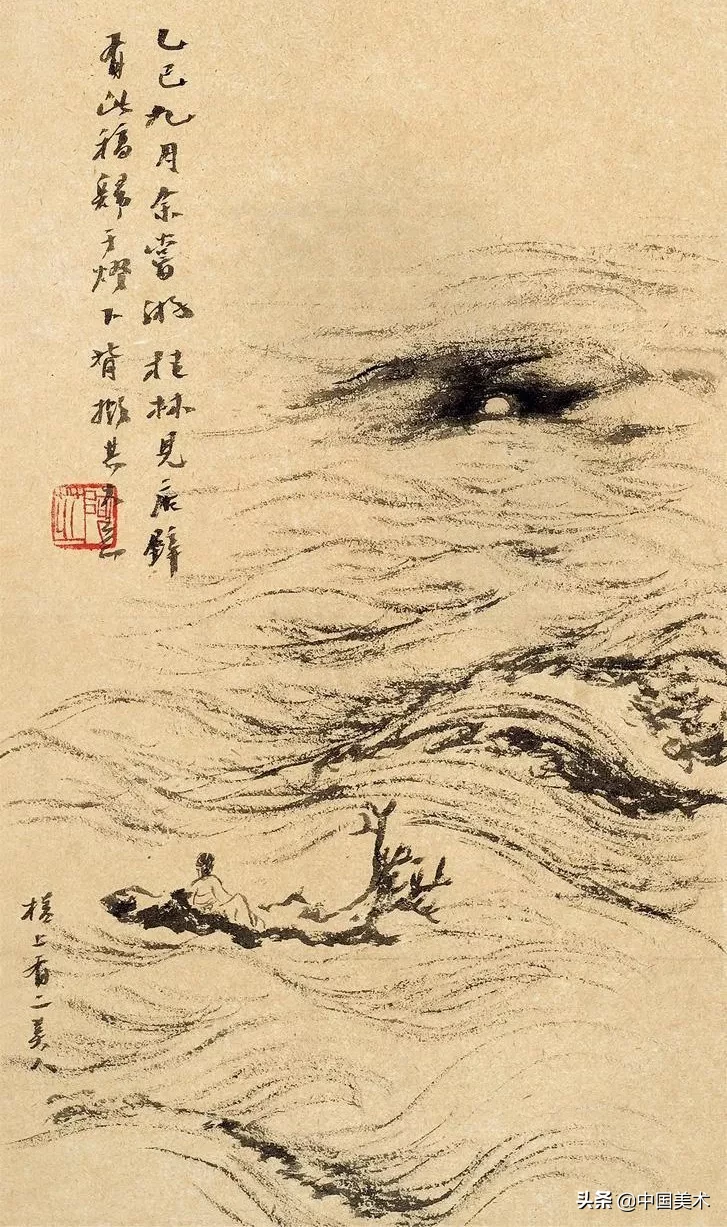 乙巳九月余嘗游桂林見店壁
有此稿歸于燈下背擬其大意
槎上看二美人
头条 @中国美术